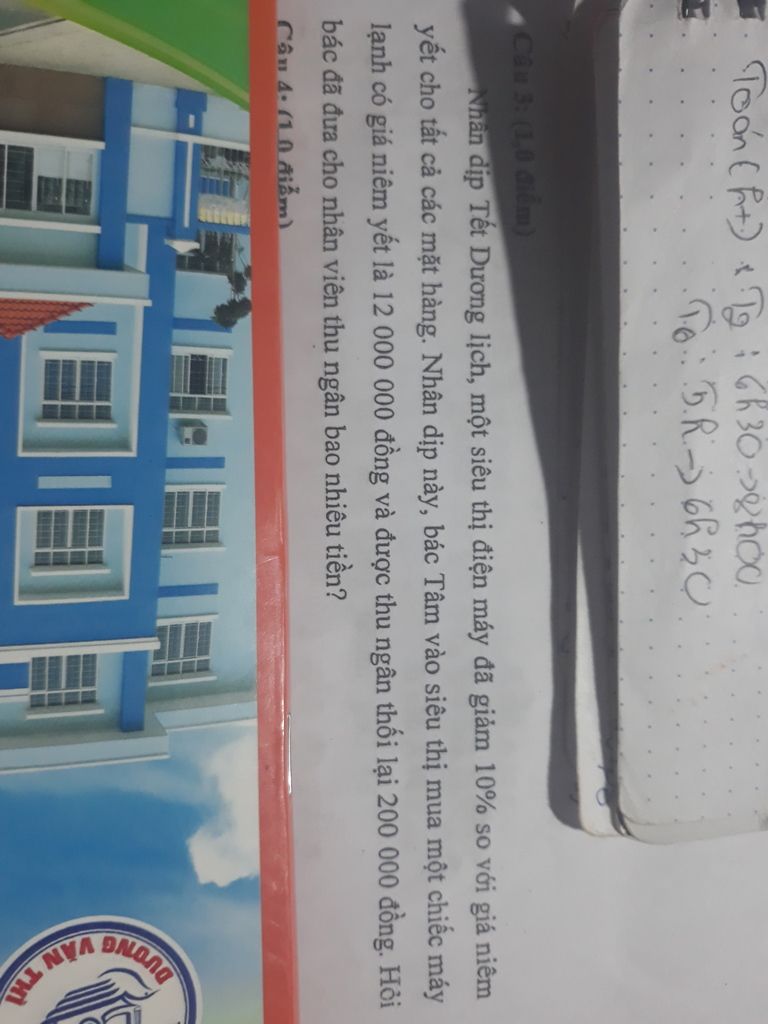 Toán (h+) * Tg : 6h30 → 8h00
5h → 6h30
Câu 3: (1,0 điểm)
Nhân dịp Tết Dương lịch, một siêu thị điện máy đã giảm 10% so với giá niêm
yết cho tất cả các mặt hàng. Nhân dịp này, bác Tâm vào siêu thị mua một chiếc máy
lạnh có giá niêm yết là 12 000 000 đồng và được thu ngân thối lại 200 000 đồng. Hỏi
bác đã đưa cho nhân viên thu ngân bao nhiêu tiền?
Câu 4: (1,0 điểm)
DƯƠNG VĂN THÌ